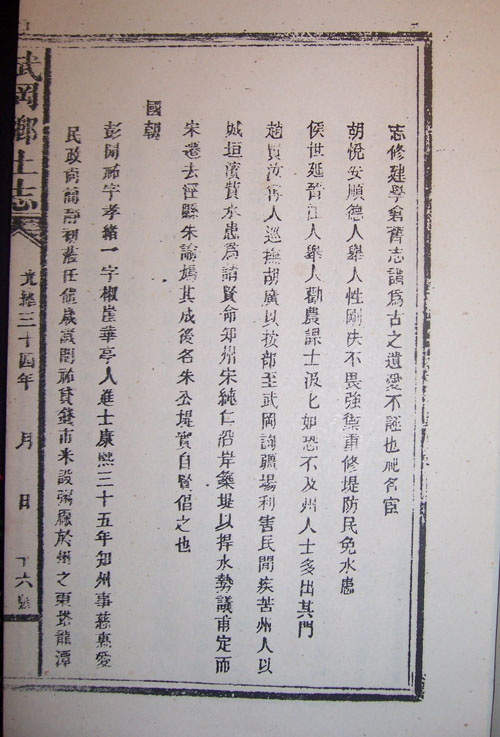 志修建學倉舊志謂爲古之遺愛不誣也祀名宦
胡悅安順德人舉人性剛决不畏強禦重修堤防民免水患
侯世延晉江人舉人勸農課士汲匕如恐不及州人士多出其門
趙賢汝寧人巡撫胡廣以按部至武岡詢疆場利害民間疾苦州人以
城垣濱資水患爲請賢命知州宋純仁沿岸築堤以捍水勢議甫定而
宋遷去涇縣朱諭嗎其成後名朱公堤實自賢倡之也
國朝
彭開祐字孝緒一字椒崖華亭人進士康熙三十五年知州事慈惠愛
民政尚簡靜初蒞任值歲歉開祐貸錢市米設粥廠於州之東塔龍潭
武岡鄉土志
光緒三十四年 月 日 十六號